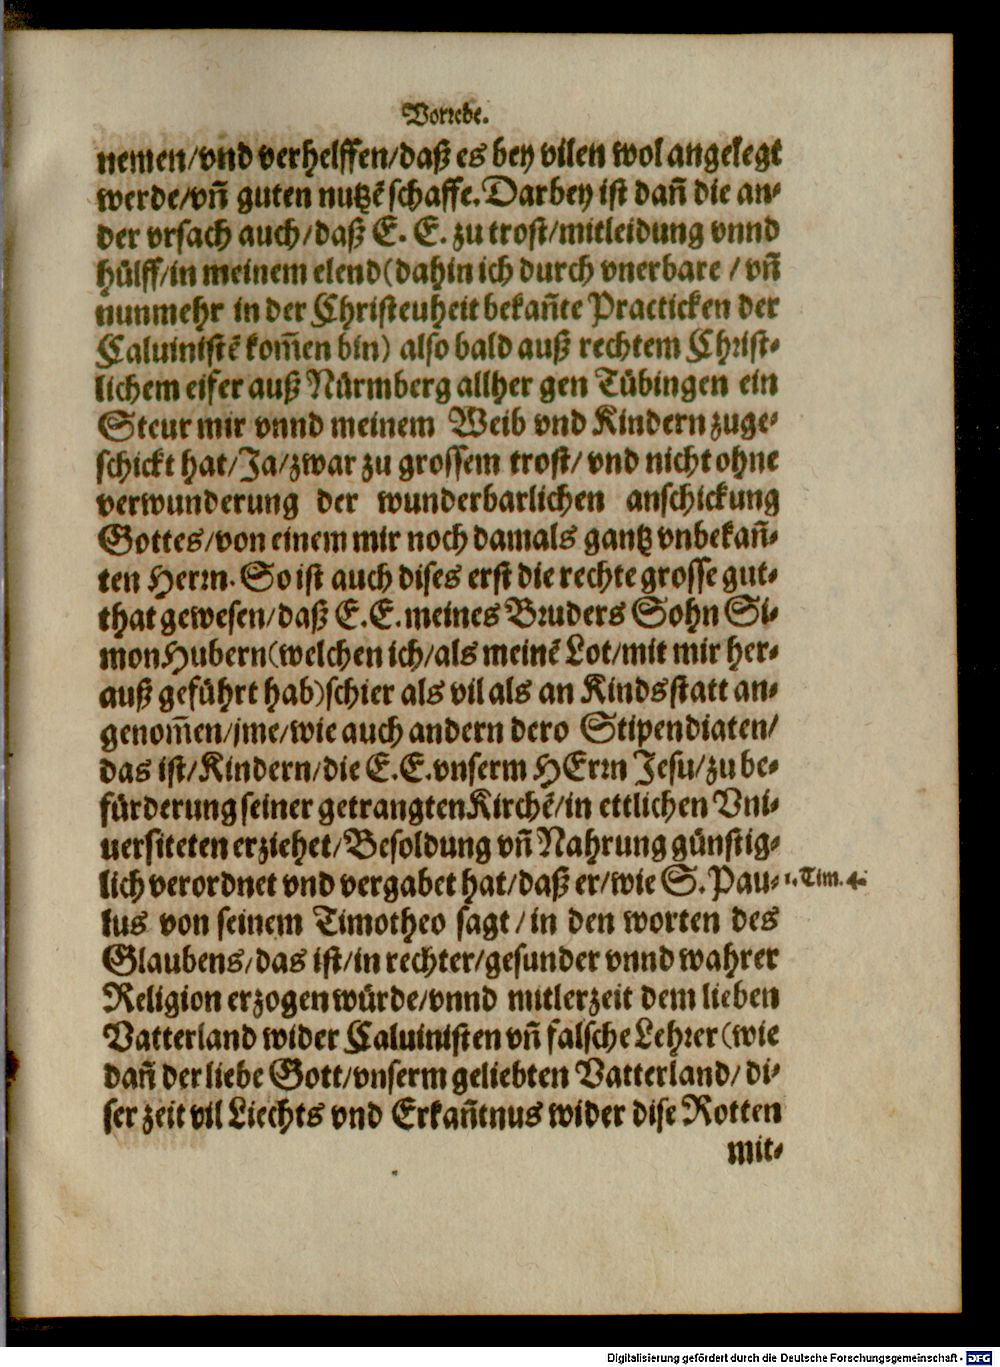 Vorrede.
nemen/vnd verhelffen/daß es bey vilen wol angelegt
werde/vñ guten nutzẽ schaffe. Darbey ist dañ die an-
der vrsach auch/daß E. E. zu trost/mitleidung vnnd
hülff/in meinem elend(dahin ich durch vnerbare / vñ
nunmehr in der Christeuheit bekañte Practicken der
Caluinistẽ kom̃en bin) also bald auß rechtem Christ-
lichem eifer auß Nürmberg allher gen Tübingen ein
Steur mir vnnd meinem Weib vnd Kindern zuge-
schickt hat/Ja/zwar zu grossem trost/ vnd nicht ohne
verwunderung der wunderbarlichen anschickung
Gottes/von einem mir noch damals gantz vnbekañ-
ten Herrn. So ist auch dises erst die rechte grosse gut-
that gewesen/daß E.E. meines Bruders Sohn Si-
mon Hubern(welchen ich/als meinẽ Lot/mit mir her-
auß geführt hab)schier als vil als an Kindsstatt an-
genom̃en/jme/wie auch andern dero Stipendiaten/
das ist/Kindern/die E.E.vnserm HErrn Jesu/zu be-
fürderung seiner getrangten Kirchẽ/in ettlichen Vni-
uersiteten erziehet/Besoldung vñ Nahrung günstig-
lich verordnet vnd vergabet hat/daß er/wie S. Pau- 1. Tim. 4.
lus von seinem Timotheo sagt/in den worten des
Glaubens/das ist/in rechter/gesunder vnnd wahrer
Religion erzogen würde/vnnd mitlerzeit dem lieben
Vatterland wider Caluinisten vñ falsche Lehrer(wie
dañ der liebe Gott/vnserm geliebten Vatterland/ di-
ser zeit vil Liechts vnd Erkañtnus wider dise Rotten
mit-
Digitalisierung gefördert durch die Deutsche Forschungsgemeinschaft - DFG